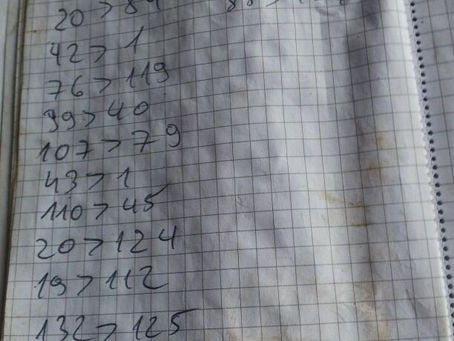 20 > 84
42 > 1
76 > 119
99 > 40
107 > 79
43 > 1
110 > 45
20 > 124
19 > 112
132 > 125